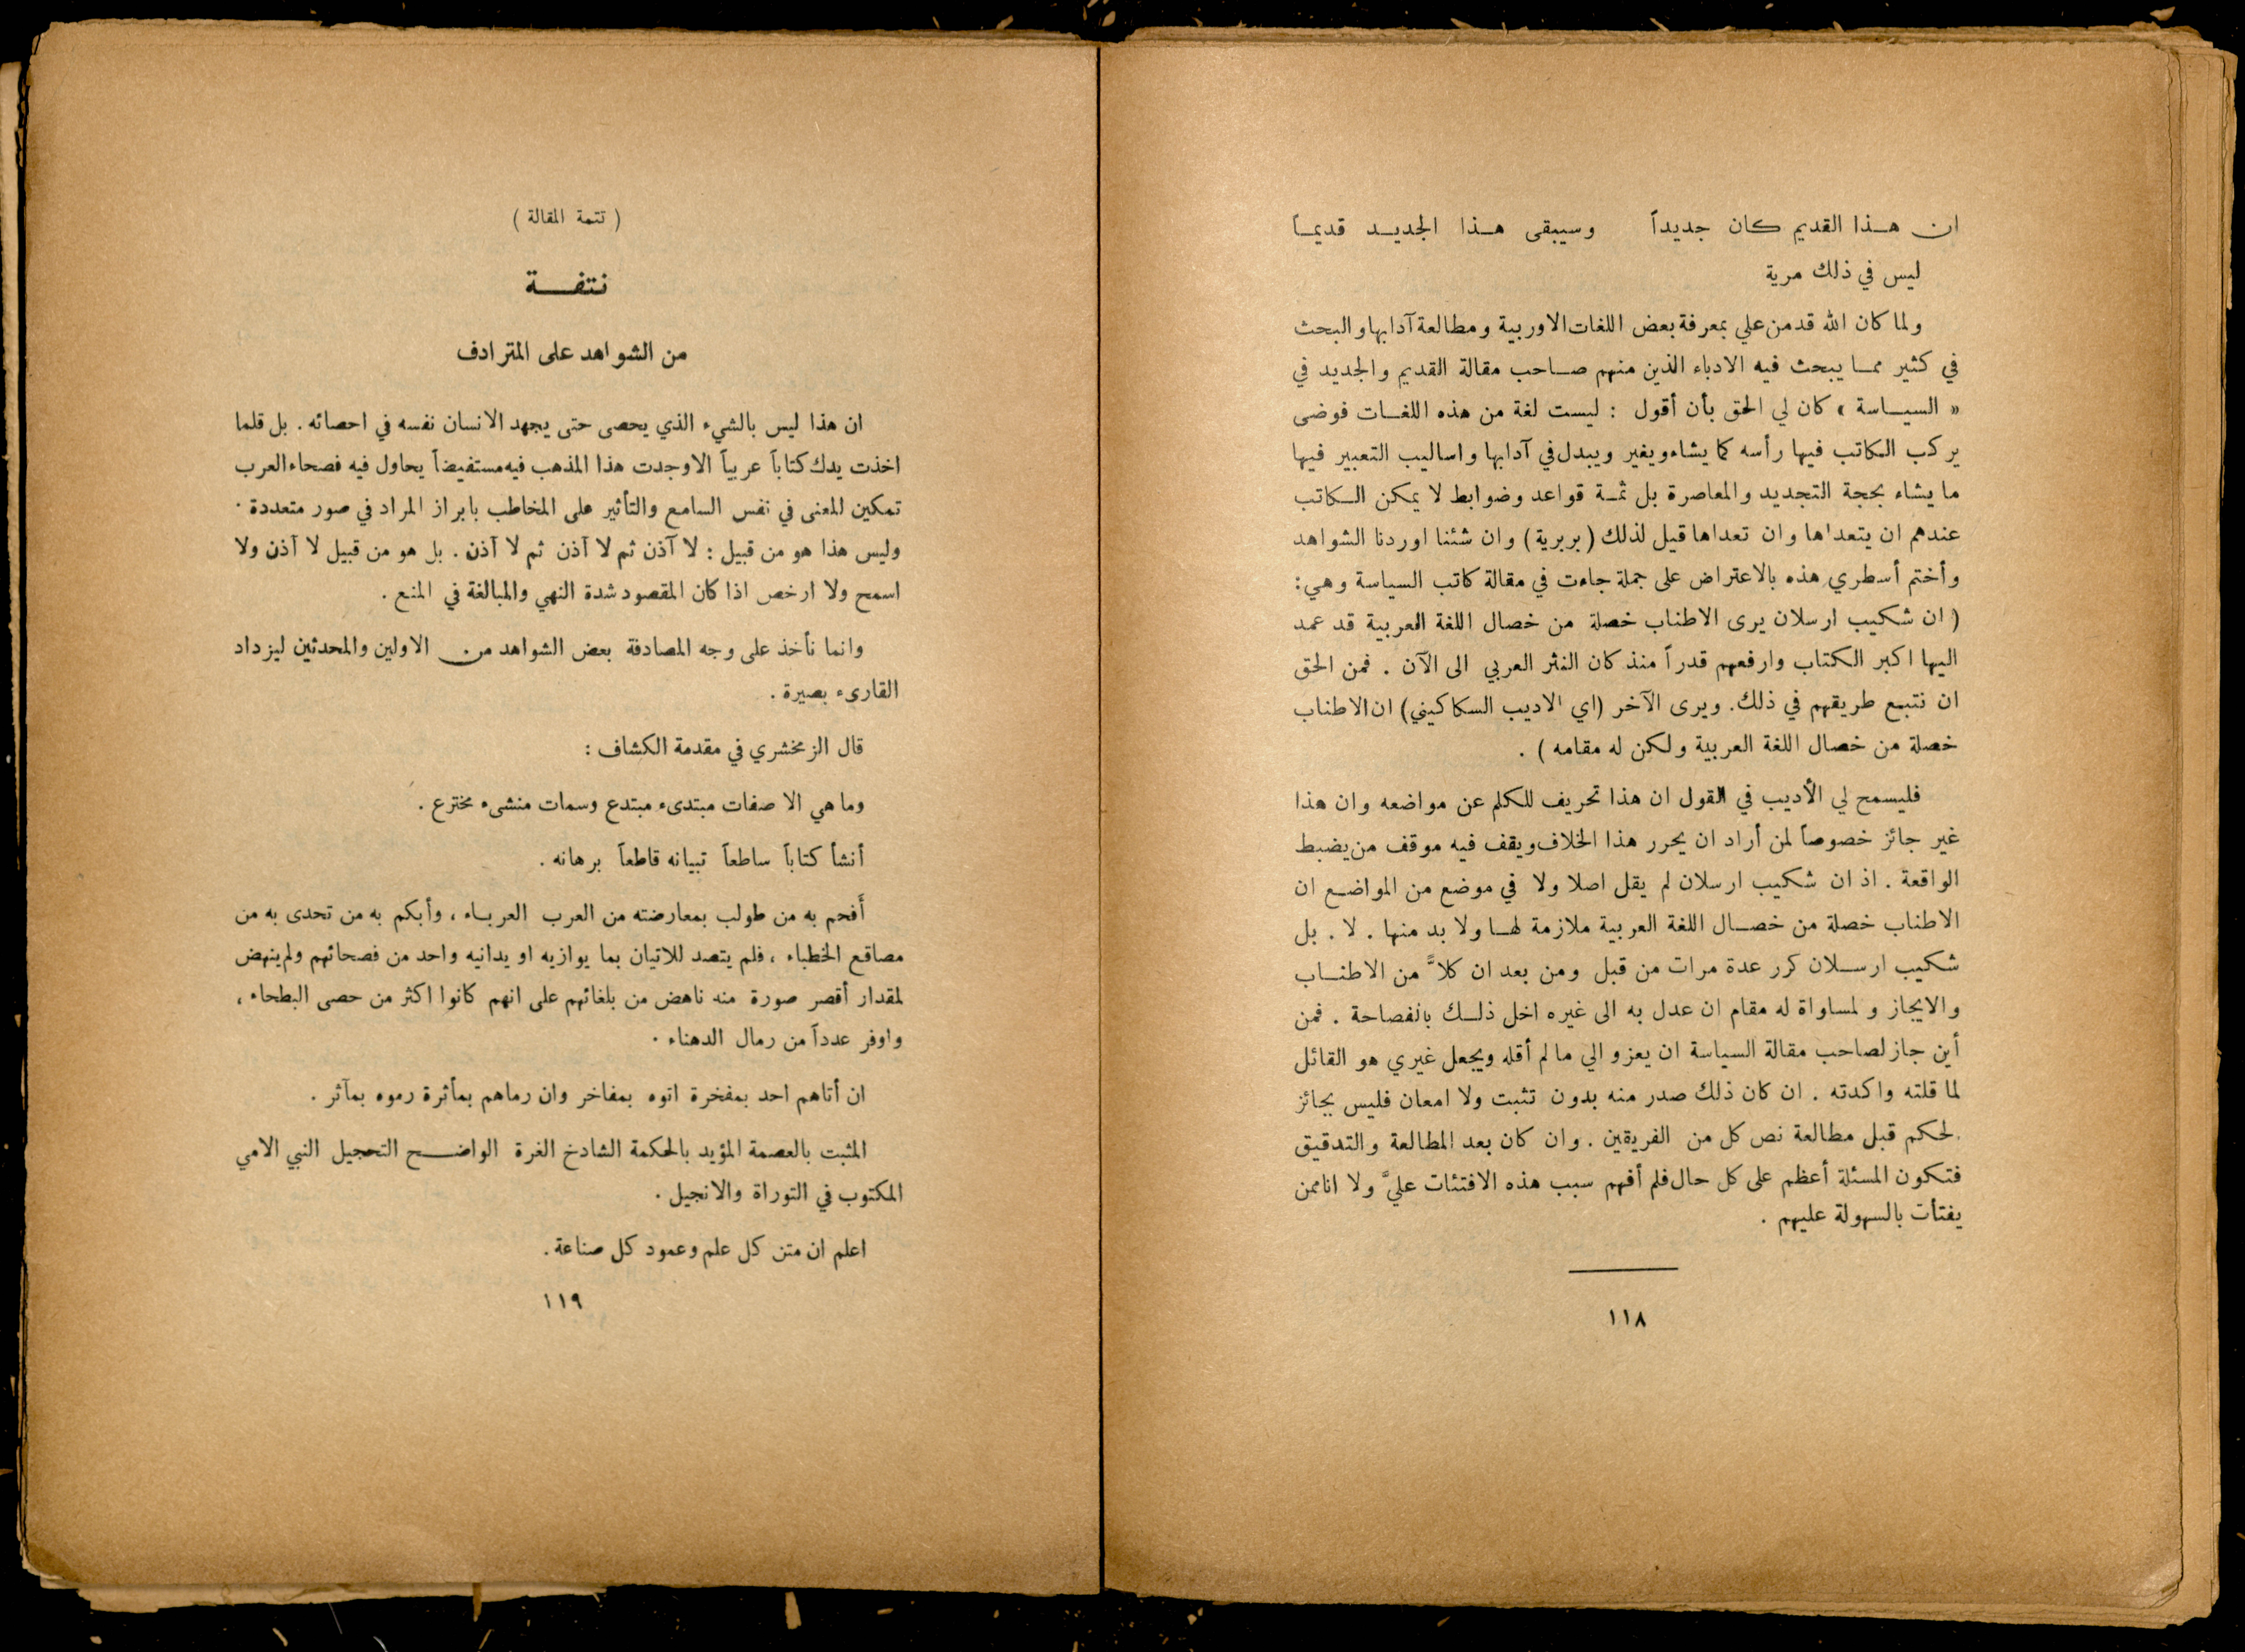 ان هذا القديم كان جديداً وسيبقى هذا الجديد قديماً
ليس في ذلك مرية
ولما كان الله قدمن علي بمعرفة بعض اللغات الاوربية ومطالعة آدابها والبحث
في كثير مما يبحث فيه الادباء الذين منهم صاحب مقالة القديم والجديد في
« السياسة » كان لي الحق بأن أقول : ليست لغة من هذه اللغات فوضى
يركب الكاتب فيها رأسه كما يشاء ويغير ويبدل في آدابها واساليب التعبير فيها
ما يشاء بحجة التجديد والمعاصرة بل ثمة قواعد وضوابط لا يمكن الكاتب
عندهم ان يتعداها وان تعداها قيل لذلك ( بربرية ) وان شئنا اوردنا الشواهد
وأختم أسطري هذه بالاعتراض على جملة جاءت في مقالة كاتب السياسة وهي :
( ان شكيب ارسلان يرى الاطناب خصلة من خصال اللغة العربية قد عمد
اليها اكبر الكتاب وارفعهم قدراً منذ كان النثر العربي الى الآن . فمن الحق
ان نتبع طريقهم في ذلك . ويرى الآخر ( اي الاديب السكاكيني ) ان الاطناب
خصلة من خصال اللغة العربية ولكن له مقامه ) .
فليسمح لي الأديب في القول ان هذا تحريف للكلم عن مواضعه وان هذا
غير جائز خصوصاً لمن أراد ان يحرر هذا الخلاف ويقف فيه موقف من يضبط
الواقعة . اذ ان شكيب ارسلان لم يقل اصلا ولا في موضع من المواضع ان
الاطناب خصلة من خصال اللغة العربية ملازمة لها ولا بد منها . لا . بل
شكيب ارسلان كرر عدة مرات من قبل ومن بعد ان كلاً من الاطناب
والايجاز ولمساواة له مقام ان عدل به الى غيره اخل ذلك بالفصاحة . فمن
أين جاز لصاحب مقالة السياسة ان يعزو الي ما لم أقله ويجعل غيري هو القائل
لما قلته واكدته . ان كان ذلك صدر منه بدون تثبت ولا امعان فليس بجائز
لحكم قبل مطالعة نص كل من الفريقين . وان كان بعد المطالعة والتدقيق
فتكون المسئلة أعظم على كل حال فلم أفهم سبب هذه الافتئات عليَّ ولا انا ممن
يفتأت بالسهولة عليهم .
١١٨
( تتمة المقالة )
نتفة
من الشواهد على المترادف
ان هذا ليس بالشيء الذي يحصى حتى يجهد الانسان نفسه في احصائه . بل قلما
اخذت يدك كتاباً عربياً الا وجدت هذا المذهب فيه مستفيضاً يحاول فيه فصحاء العرب
تمكين المعنى في نفس السامع والتأثير على المخاطب بابراز المراد في صور متعددة .
وليس هذا هو من قبيل : لا آذن ثم لا آذن ثم لا آذن . بل هو من قبيل لا آذن ولا
اسمح ولا ارخص اذا كان المقصود شدة النهي والمبالغة في المنع .
وانما نأخذ على وجه المصادفة بعض الشواهد من الاولين والمحدثين ليزداد
القارىء بصيرة .
قال الزمخشري في مقدمة الكشاف :
وما هي الا صفات مبتدىء مبتدع وسمات منشىء مخترع .
أنشأ كتاباً ساطعاً تبيانه قاطعاً برهانه .
أفحم به من طولب بمعارضته من العرب العرباء ، وأبكم به من تحدى به من
مصاقع الخطباء ، فلم يتصد للاتيان بما يوازيه او يدانيه واحد من فصحائهم ولم ينهض
لمقدار أقصر صورة منه ناهض من بلغائهم على انهم كانوا اكثر من حصى البطحاء ،
واوفر عدداً من رمال الدهناء .
ان أتاهم احد بمفخرة اتوه بمفاخر وان رماهم بمأثرة رموه بمآثر .
المثبت بالعصمة المؤيد بالحكمة الشادخ الغرة الواضح التحجيل النبي الامي
المكتوب في التوراة والانجيل .
اعلم ان متن كل علم وعمود كل صناعة .
١١٩